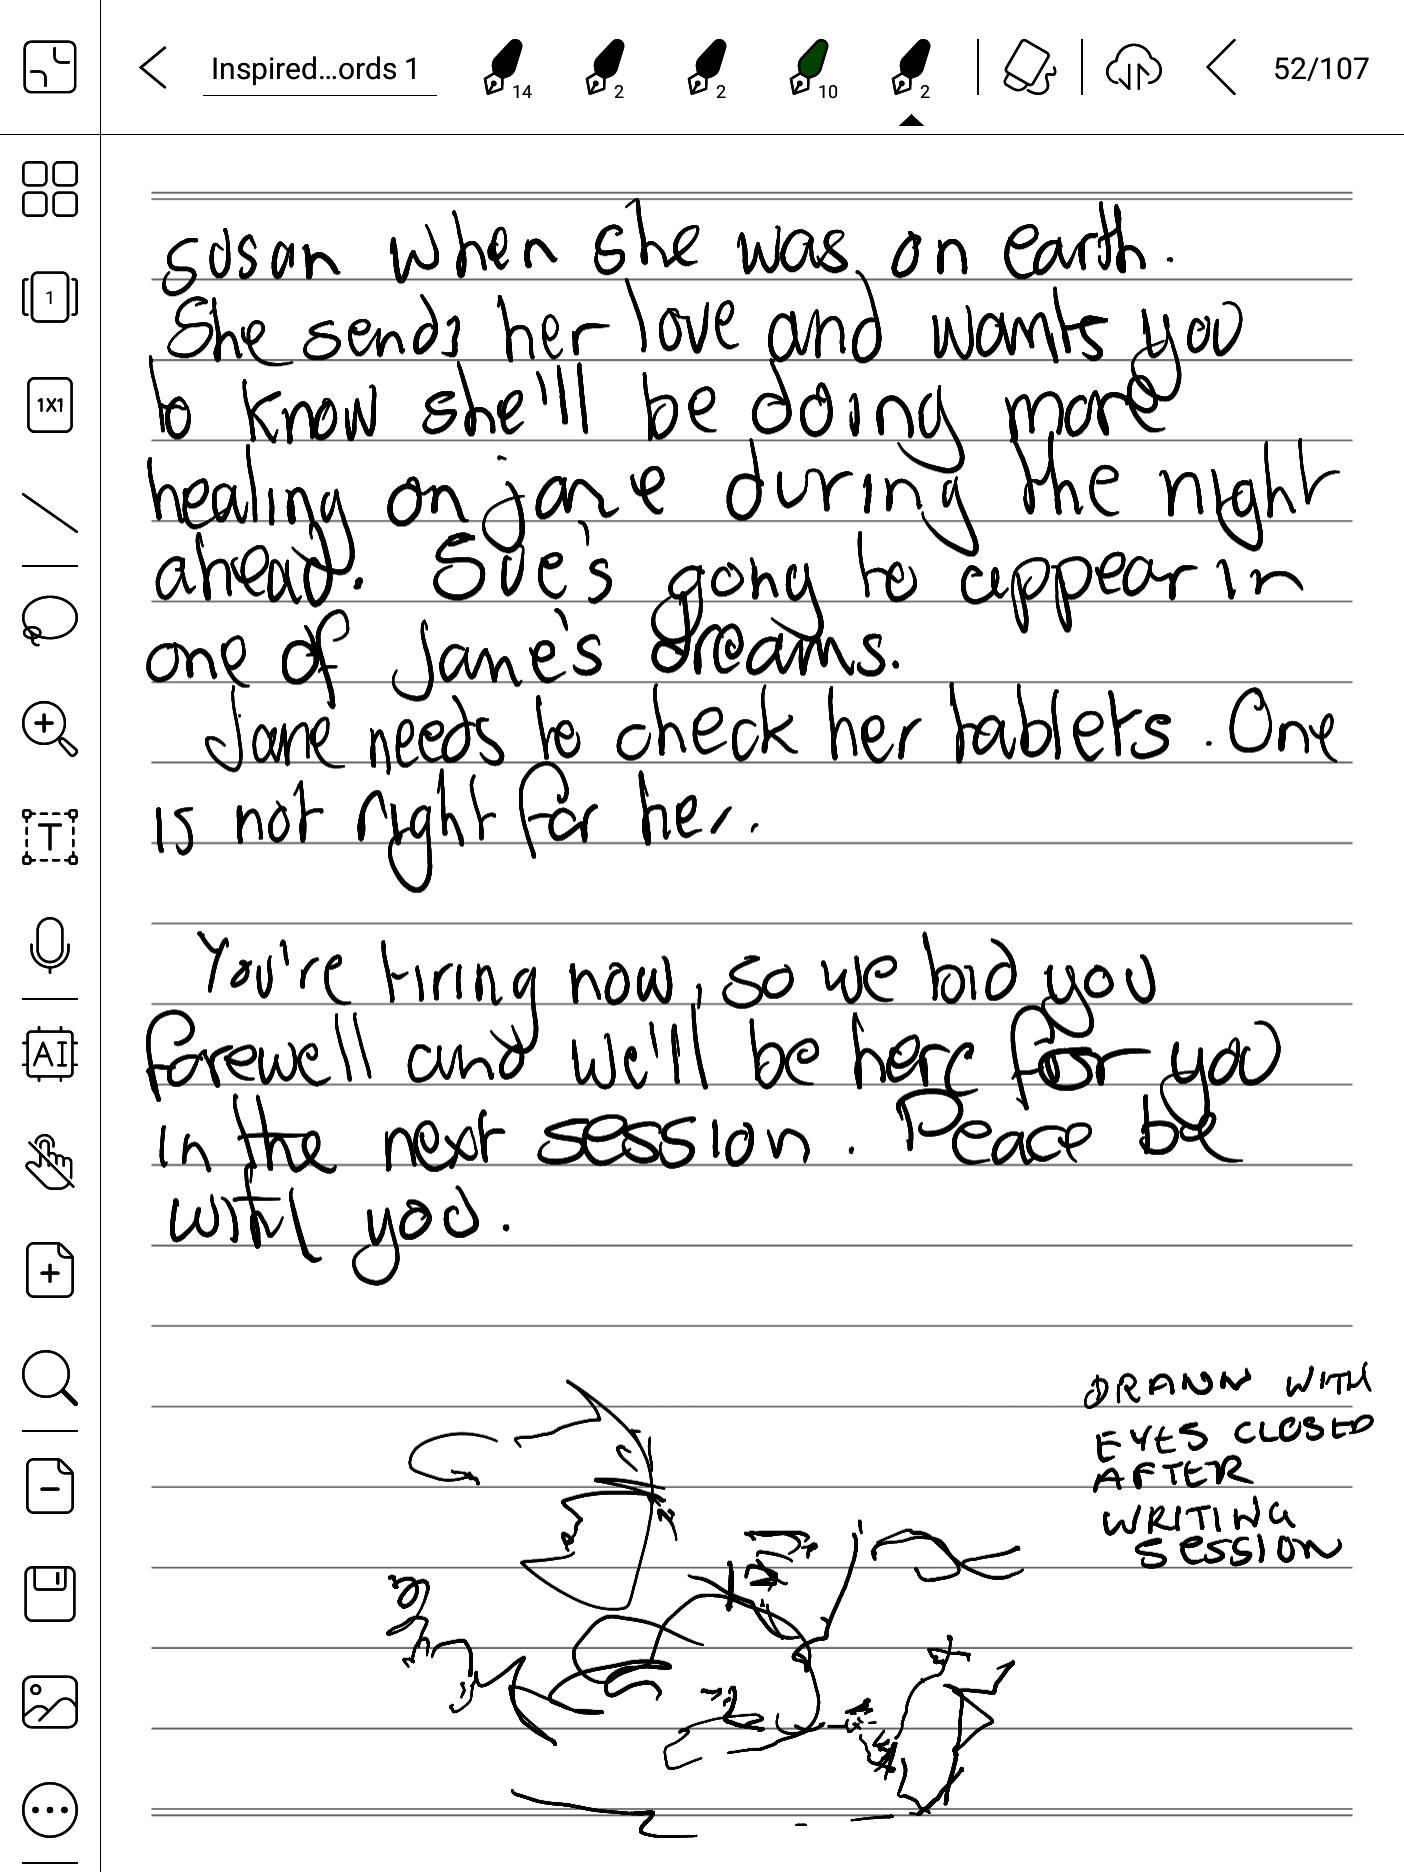 Inspired...ords 1
14
2
2
10
2
52/107
1
1X1
T
AI
susan when she was on earth.
She sends her love and wants you
to know she'll be doing more
healing on jane during the night
ahead. Sue's going to appear in
one of Jane's dreams.
Jane needs to check her tablets. One
is not right for her.
You're tiring now, so we bid you
farewell and we'll be here for you
in the next session. Peace be
with you.
DRAWN WITH
EYES CLOSED
AFTER
WRITING
SESSION